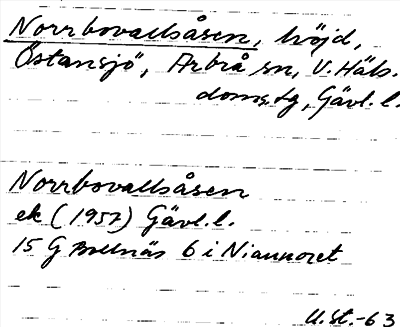 Norrbovallsåsen, höjd,
Östansjö, Arbrå sn, V. Häls.
doms.tg, Gävl. l.
Norrbovallsåsen
ek (1957) Gävl. l.
15 G Bollnäs 6 i N
U. St. -63